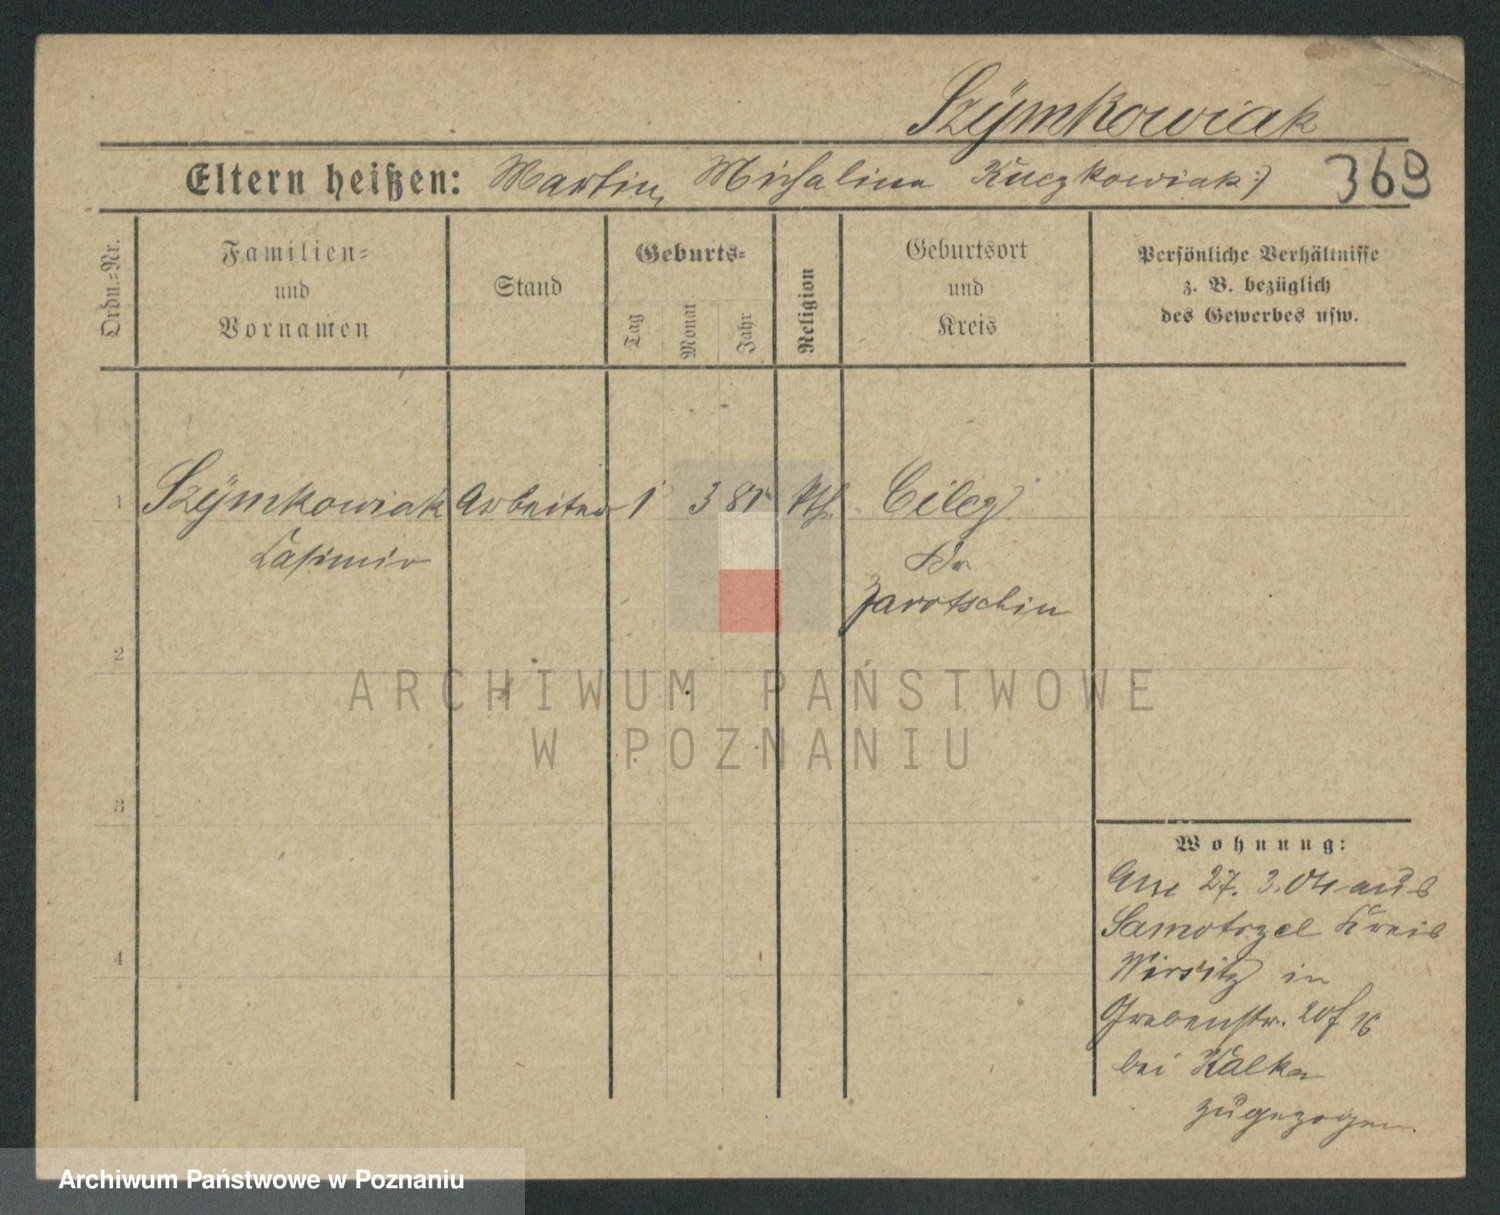 Szÿmkowiak
Eltern heißen: Martin, Michalina Kuczkowiak 369
Ordn.-Nr.
Familien-
und
Vornamen
Stand
Geburts-
Tag
Monat
Jahr
Religion
Geburtsort
und
Kreis
Persönliche Verhältnisse
z. B. bezüglich
des Gewerbes usw.
1 Szÿmkowiak Arbeiter 1 3 81 kth. Cilcz
Casimir Kr
Jarotschin
2
ARCHIWUM PAŃSTWOWE
W POZNANIU
3
Wohnung:
Am 27. 3. 04 aus
Samotrzel Kreis
Wirsitz in
Grabenstr.
4
bei Kalka
zugezogen.
Archiwum Państwowe w Poznaniu